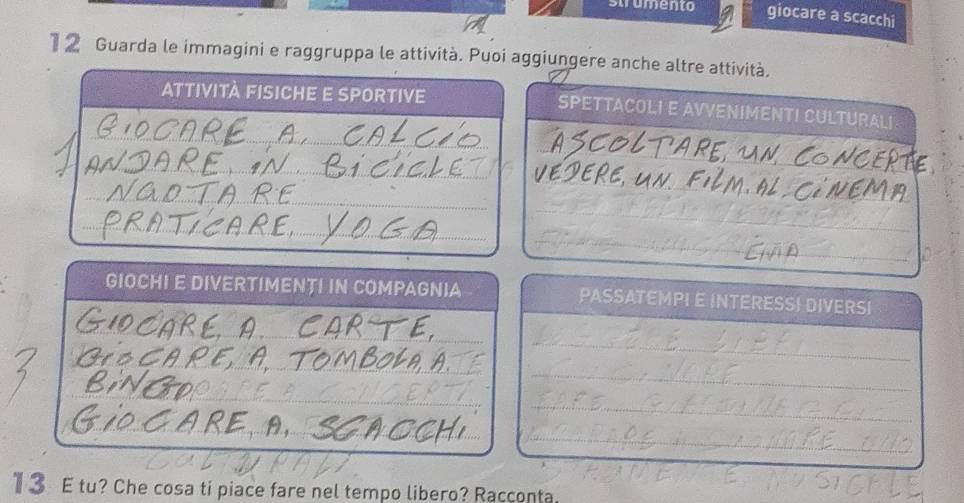 strumento
giocare a scacchi
12 Guarda le immagini e raggruppa le attività. Puoi aggiungere anche altre attività.
ATTIVITÀ FISICHE E SPORTIVE
GIOCARE A. CALCIO
ANDARE IN BiCiCLET
NAOTARE
PRATICARE, YOGA
SPETTACOLI E AVVENIMENTI CULTURALI
ASCOLTARE, UN CONCERTE.
VEDERE, UN FILM. AL. CINEMA
EMA
GIOCHI E DIVERTIMENTI IN COMPAGNIA
GIOCARE, A. CARTE,
GIOCARE, A, TOMBOLA, A.
BINGO
GIOCARE, A, SCACCHI
PASSATEMPI E INTERESSI DIVERSI
13 E tu? Che cosa ti piace fare nel tempo libero? Racconta.